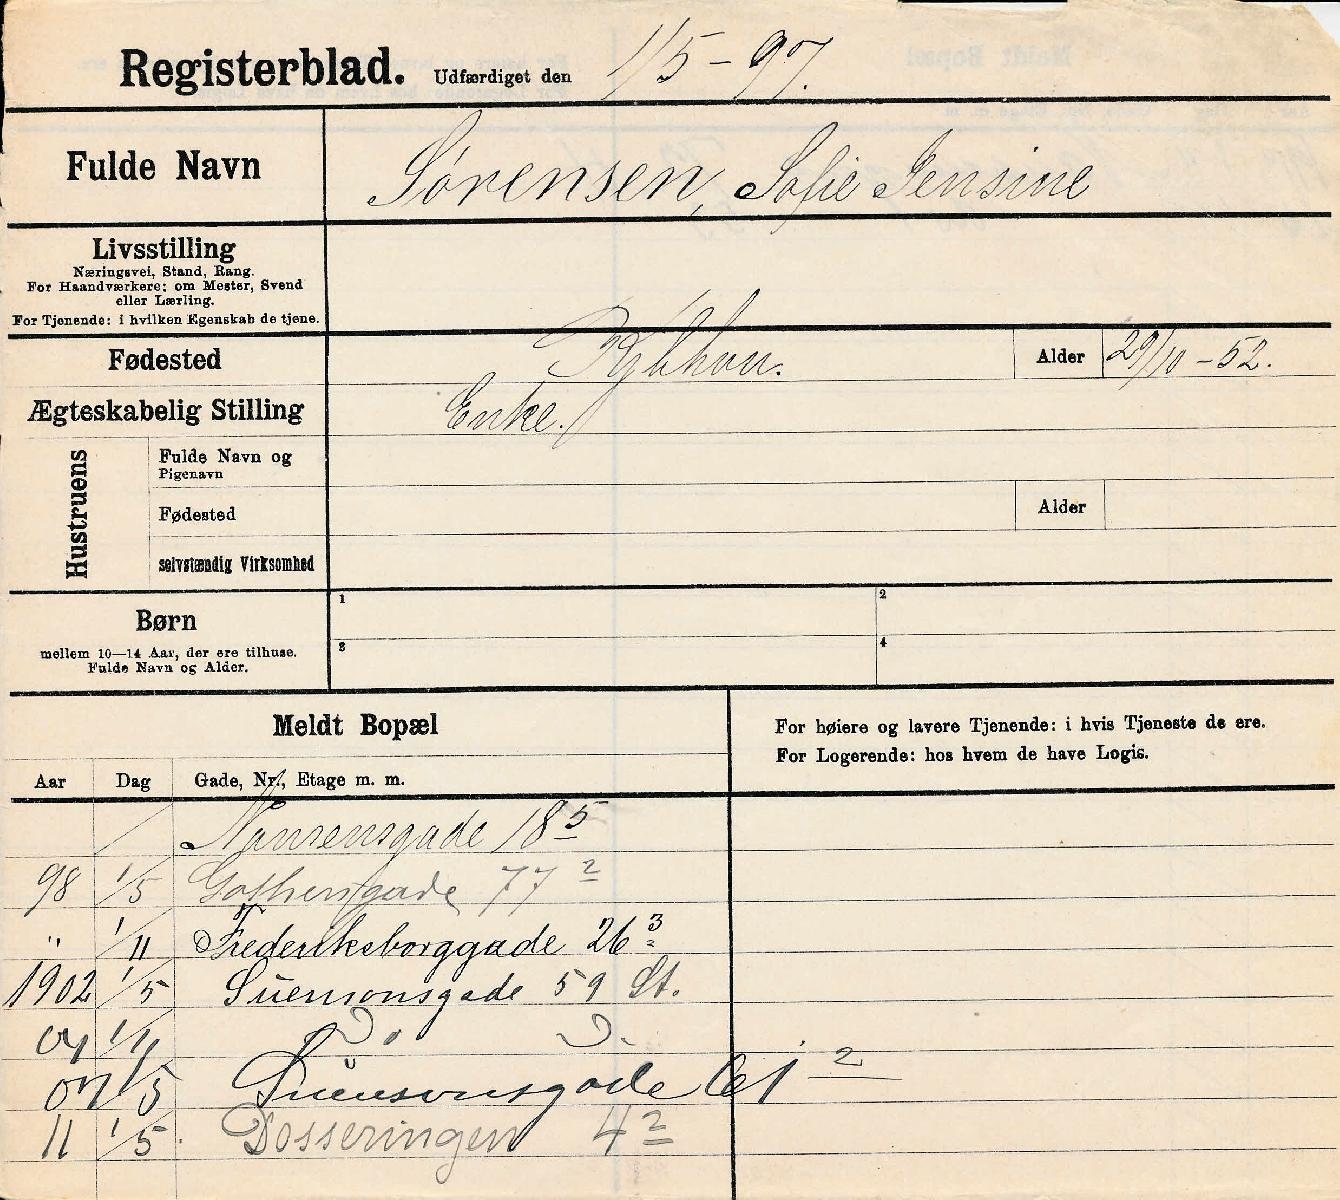 Registerblad. Udfærdiget den 1/5-97.
Fulde Navn Sørensen, Sofie Jensine
Livsstilling
Næringsvei, Stand, Rang.
For Haandværkere: om Mester, Svend
eller Lærling.
For Tjenende: i hvilken Egenskab de tjene.
Fødested Kjbhvn. Alder 29/10-52.
Ægteskabelig Stilling Enke.
Hustruens
Fulde Navn og
Pigenavn
Fødested Alder
selvstændig Virksomhed
Børn
mellem 10—14 Aar, der ere tilhuse.
Fulde Navn og Alder.
1 2
3 4
Meldt Bopæl
For høiere og lavere Tjenende: i hvis Tjeneste de ere.
For Logerende: hos hvem de have Logis.
Aar Dag Gade, Nr., Etage m. m.
Nansensgade 18 5
98 1/5 Gothersgade 77 2
" 1/11 Frederiksborggade 26 3
1902 1/5 Suensonsgade 59 St.
04 1/11 Do D.
07 1/5 Suensonsgade 61 2
11 1/5 Dosseringen 4 2